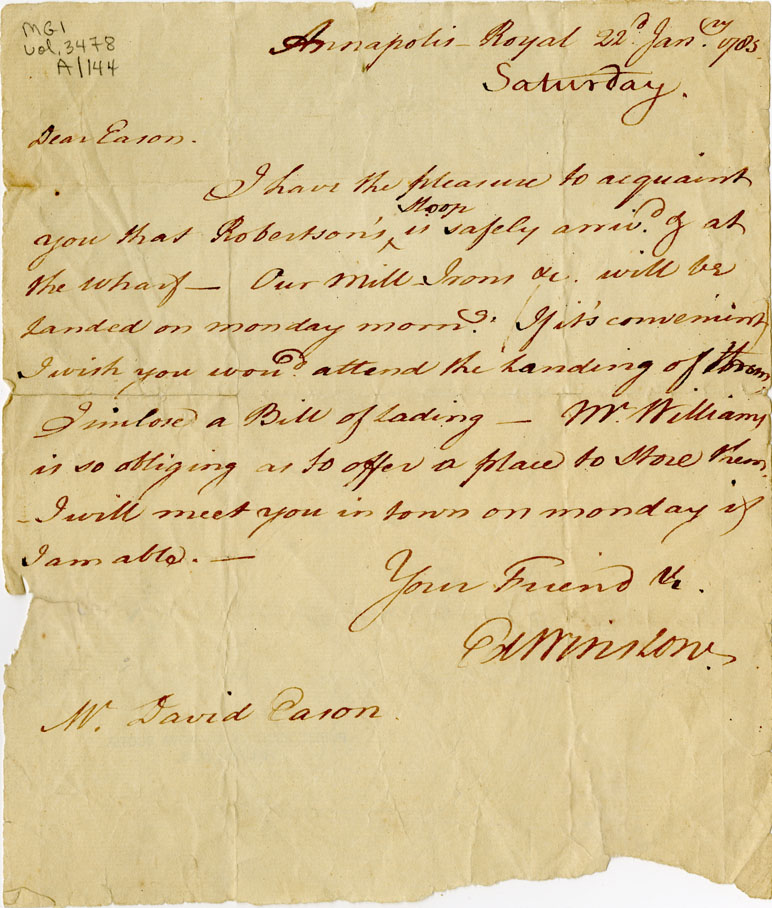 MG1
vol. 3478
A/144
Annapolis-Royal 22d. Jan.ry 1785
Saturday.
Dear Eason.
I have the pleasure to acquaint
sloop
you that Robertson's ^ is safely arriv'd & at
the wharf — Our Mill-Irons &c. will be
Landed on monday morng. If it's convenient
I wish you wou'd attend the Landing of them
I inclose a Bill of Lading — Mr. Williams
is so obliging as to offer a place to Store them.
- I will meet you in town on monday if
I am able. —
Your Friend &c.
Ed Winslow.
Mr. David Eason.